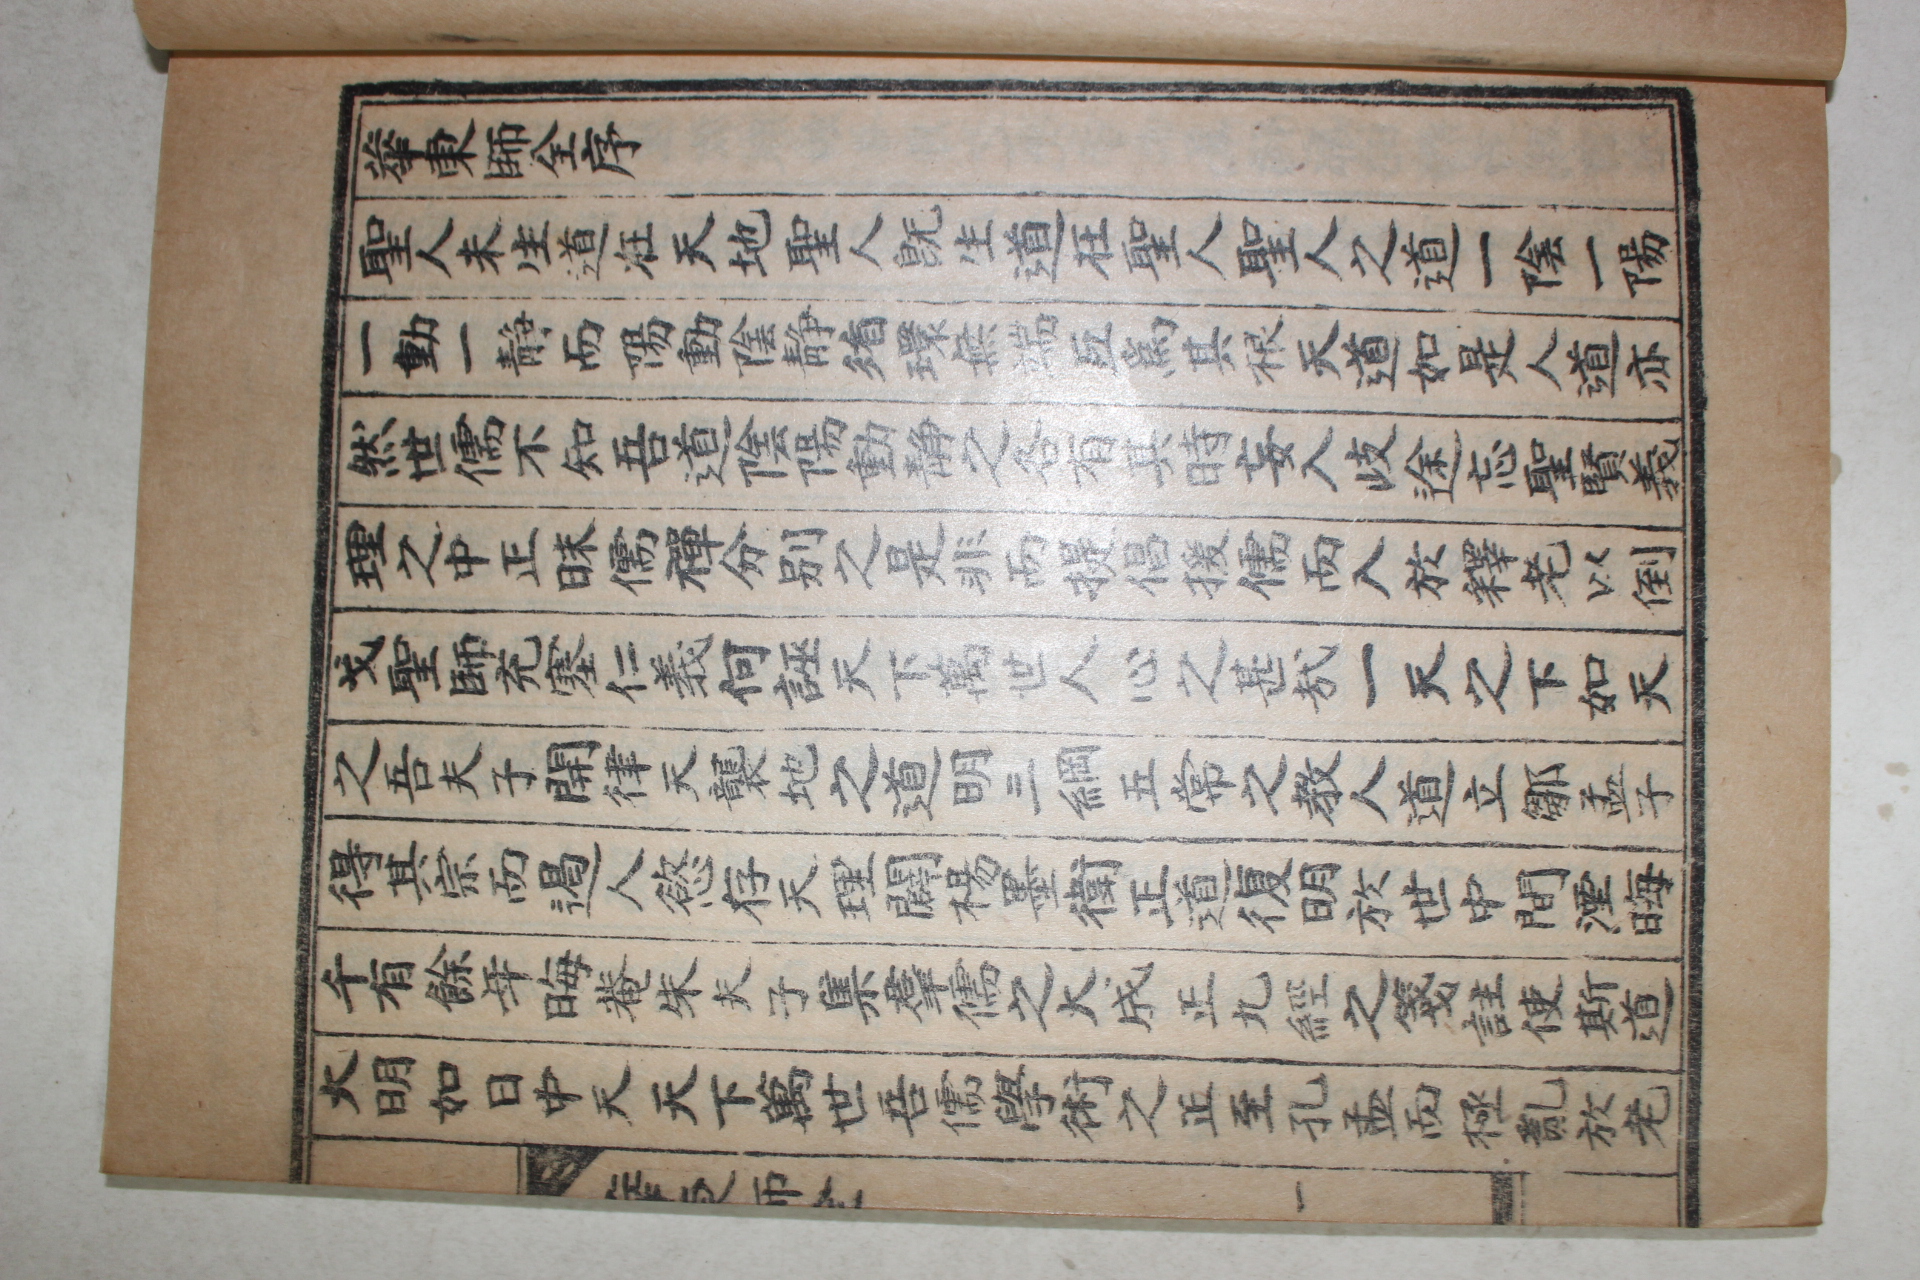 華東師全序
聖人未生道在天地聖人既生道在聖人聖人之道一陰一陽
一動一靜而陽動陰靜循環無端互爲其根天道如是人道亦
然世儒不知吾道陰陽動靜之各有其時妄入歧途忘聖賢義
理之中正昧儒禪分別之是非而提倡援儒而入於釋老以倒
戈聖師充塞仁義何誣天下萬世人心之甚哉一天之下如天
之吾夫子開律天襲地之道明三綱五常之教人道立鄒孟子
得其宗而遏人慾存天理闢楊墨衛正道復明於世中間湮晦
千有餘年晦菴朱夫子集羣儒之大成正九經之箋註使斯道
大明如日中天天下萬世吾儒學術之正至孔孟而極亂於老
華東師全
一